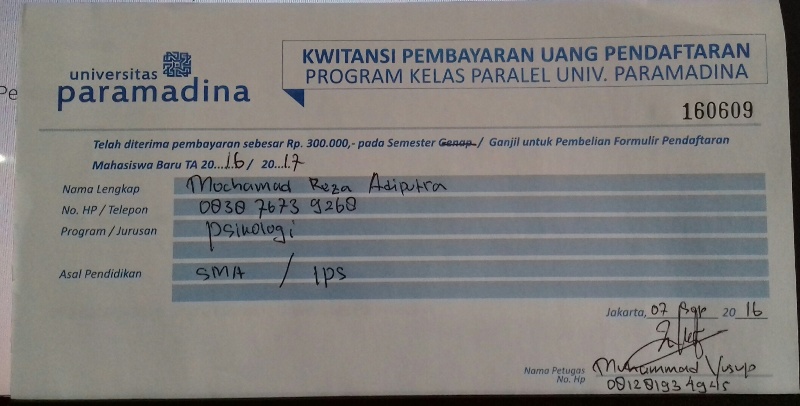 Pe
universitas
paramadina
KWITANSI PEMBAYARAN UANG PENDAFTARAN
PROGRAM KELAS PARALEL UNIV. PARAMADINA
160609
Telah diterima pembayaran sebesar Rp. 300.000,- pada Semester Genap / Ganjil untuk Pembelian Formulir Pendaftaran
Mahasiswa Baru TA 20...16 / 20...17
Nama Lengkap Mochamad Reza Adiputra
No. HP / Telepon 0838 7673 9268
Program / Jurusan Psikologi
Asal Pendidikan SMA / IPS
Jakarta, 07 20 16
Nama Petugas Muhammad Yusup
No. Hp